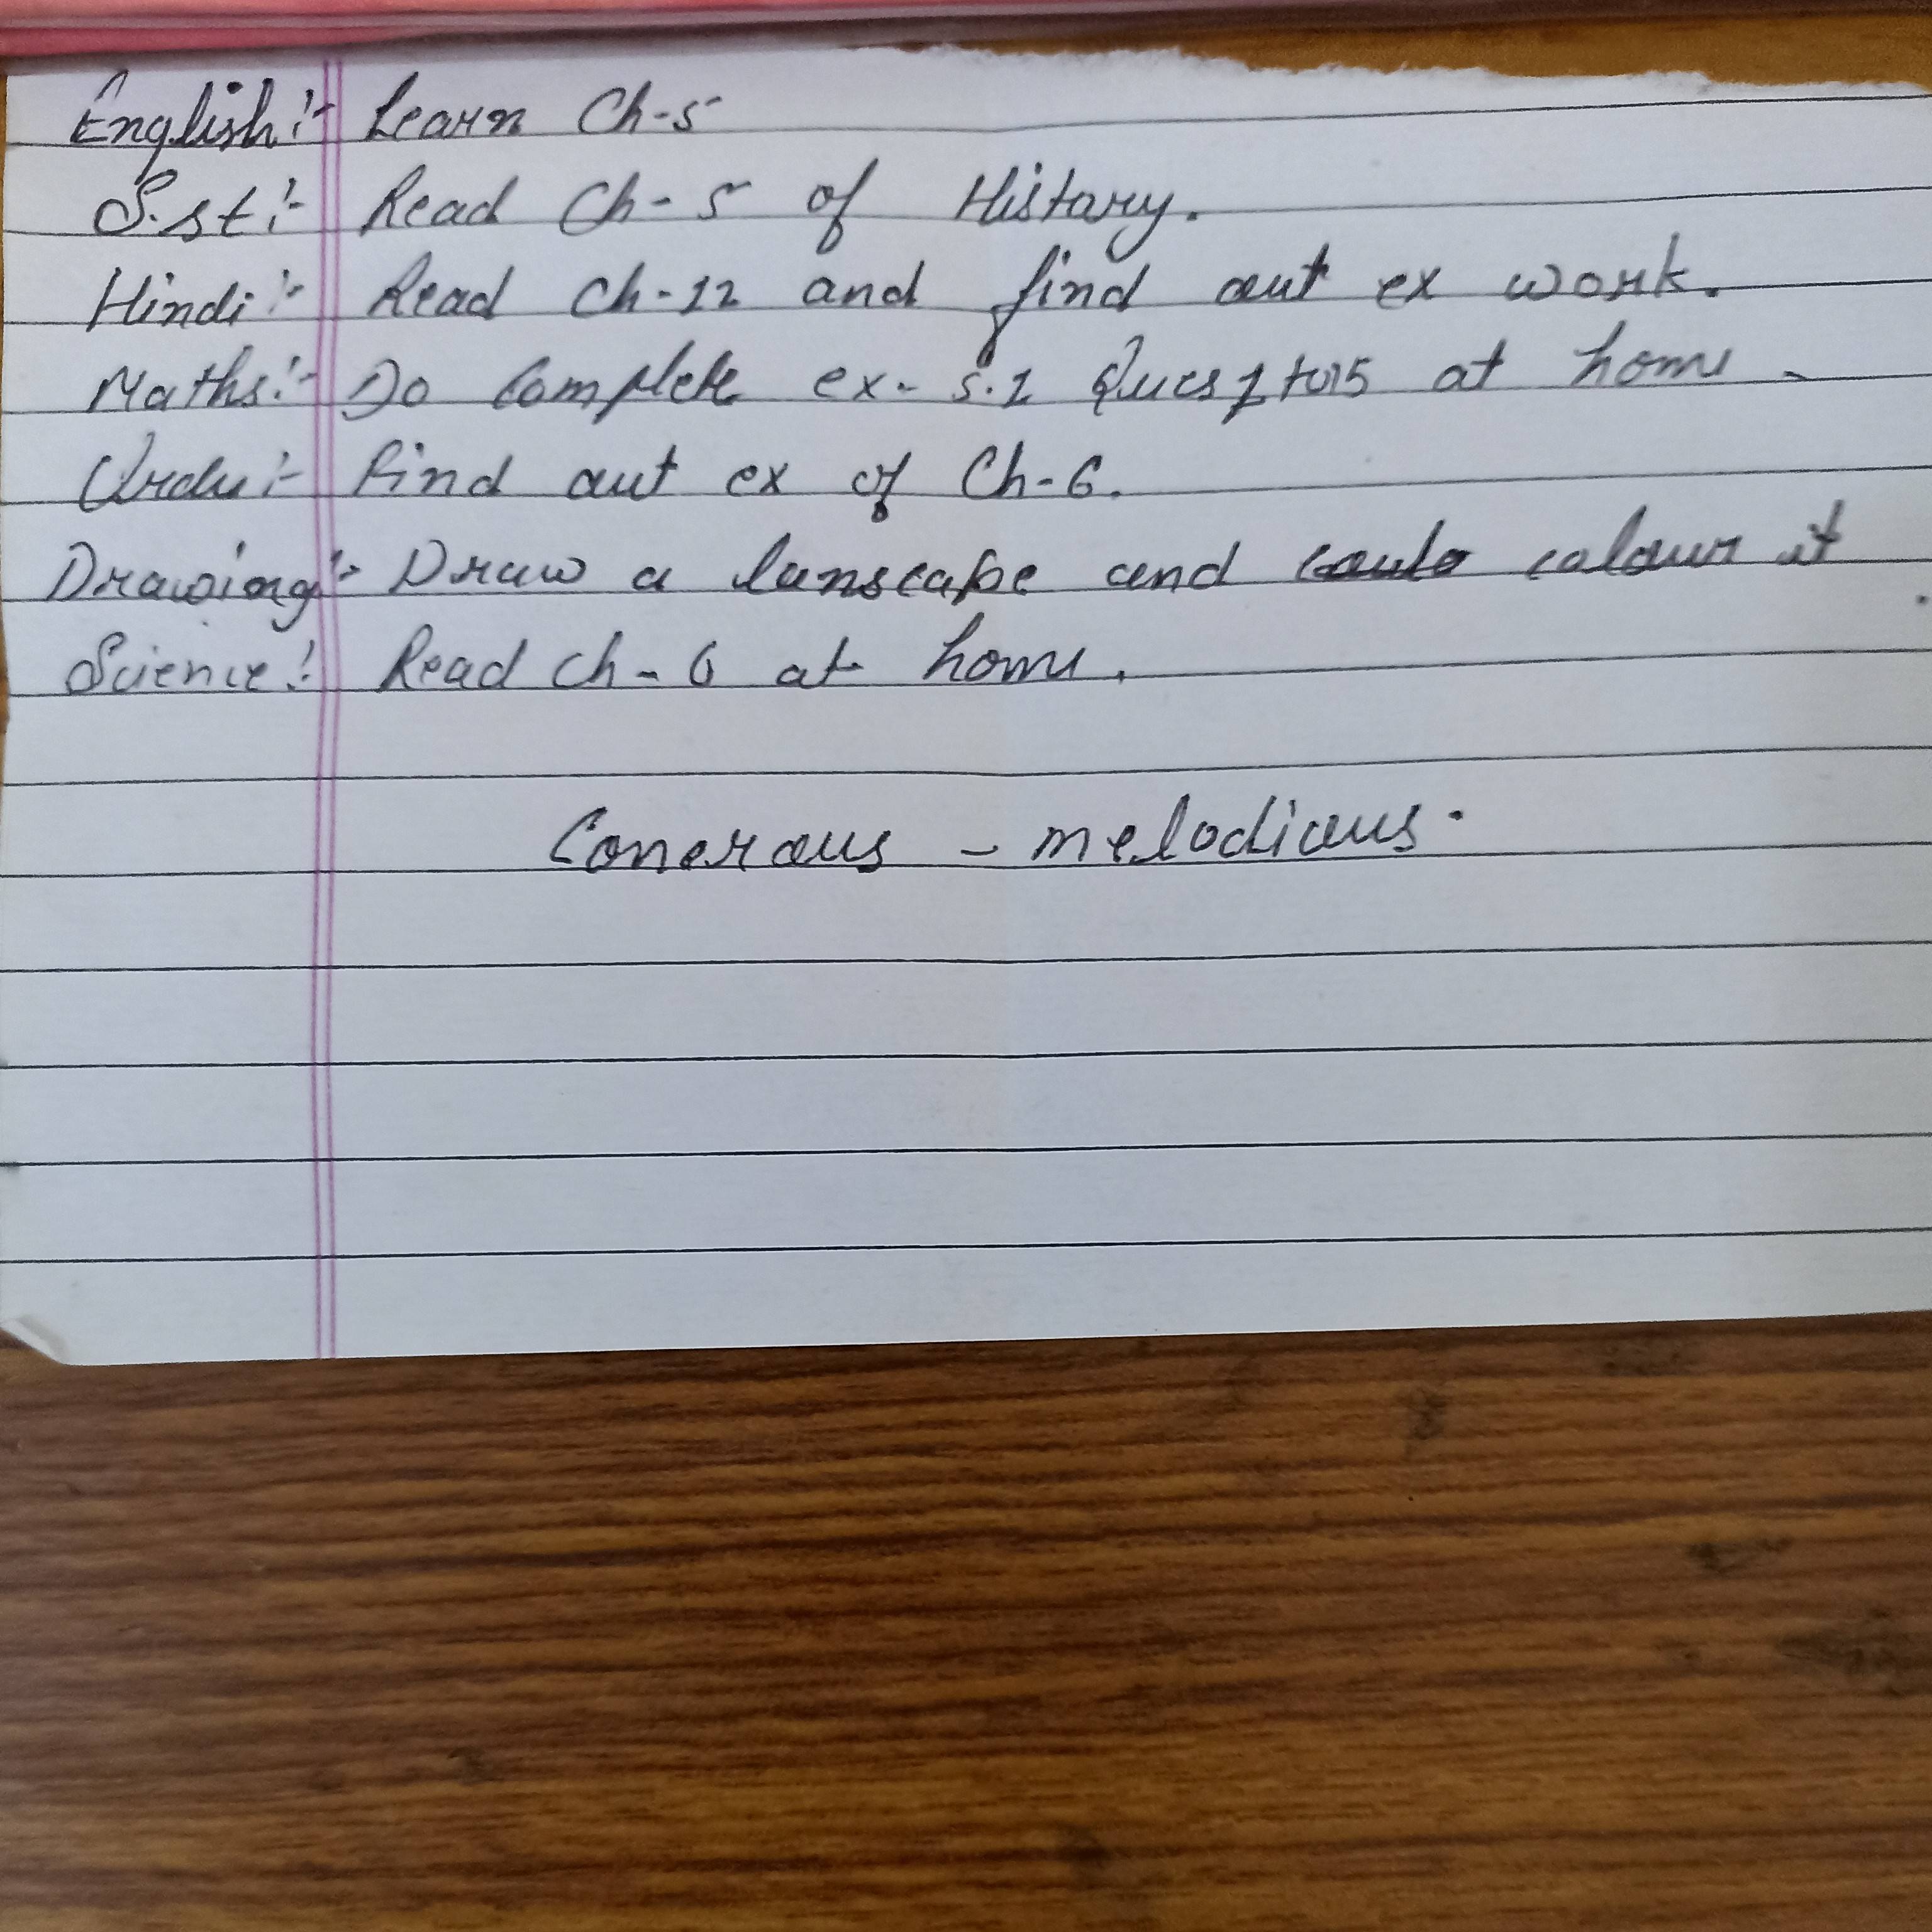 English:- Learn Ch-5
S.st:- Read Ch-5 of History.
Hindi:- Read Ch-12 and find out ex work.
Maths:- Do Complete ex- 5.1 Ques 1 to 15 at home.
Urdu:- Find out ex of Ch-6.
Drawing:- Draw a lanscape and colour it.
Science: Read Ch-6 at home.
Conerous - melodious.